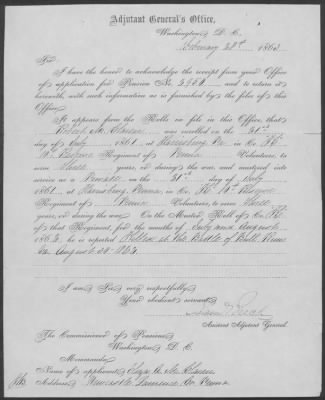 Adjutant General's Office,
Washington, D. C.
February 28th, 1863
Sir:
I have the honor to acknowledge the receipt from your Office
of application for Pension No. and to return it
herewith, with such information as is furnished by the files of this
Office.
It appears from the Rolls on file in this Office, that
Robert M. was enrolled on the 21st
day of July, 1861, at Harrisburg Pa in Co.
10th Regiment of Penna Volunteers, to serve
Three years, or during the war, and mustered into
service as a Private on the 21st day of July,
1861, at Harrisburg Penna, in Co. 10th
Regiment of Penna Volunteers, to serve Three
years, or during the war. On the Muster Roll of Co.
of that Regiment, for the months of July and August,
1862, he is reported Killed at the Battle of Bull Run
Va August 30 1862
I am, Sir, very respectfully,
Your obedient servant,
Assistant Adjutant General.
The Commissioner of Pensions,
Washington, D. C.
Memoranda:
Name of applicant, Eliza
Address, Newcastle, Lawrence Co. Penna